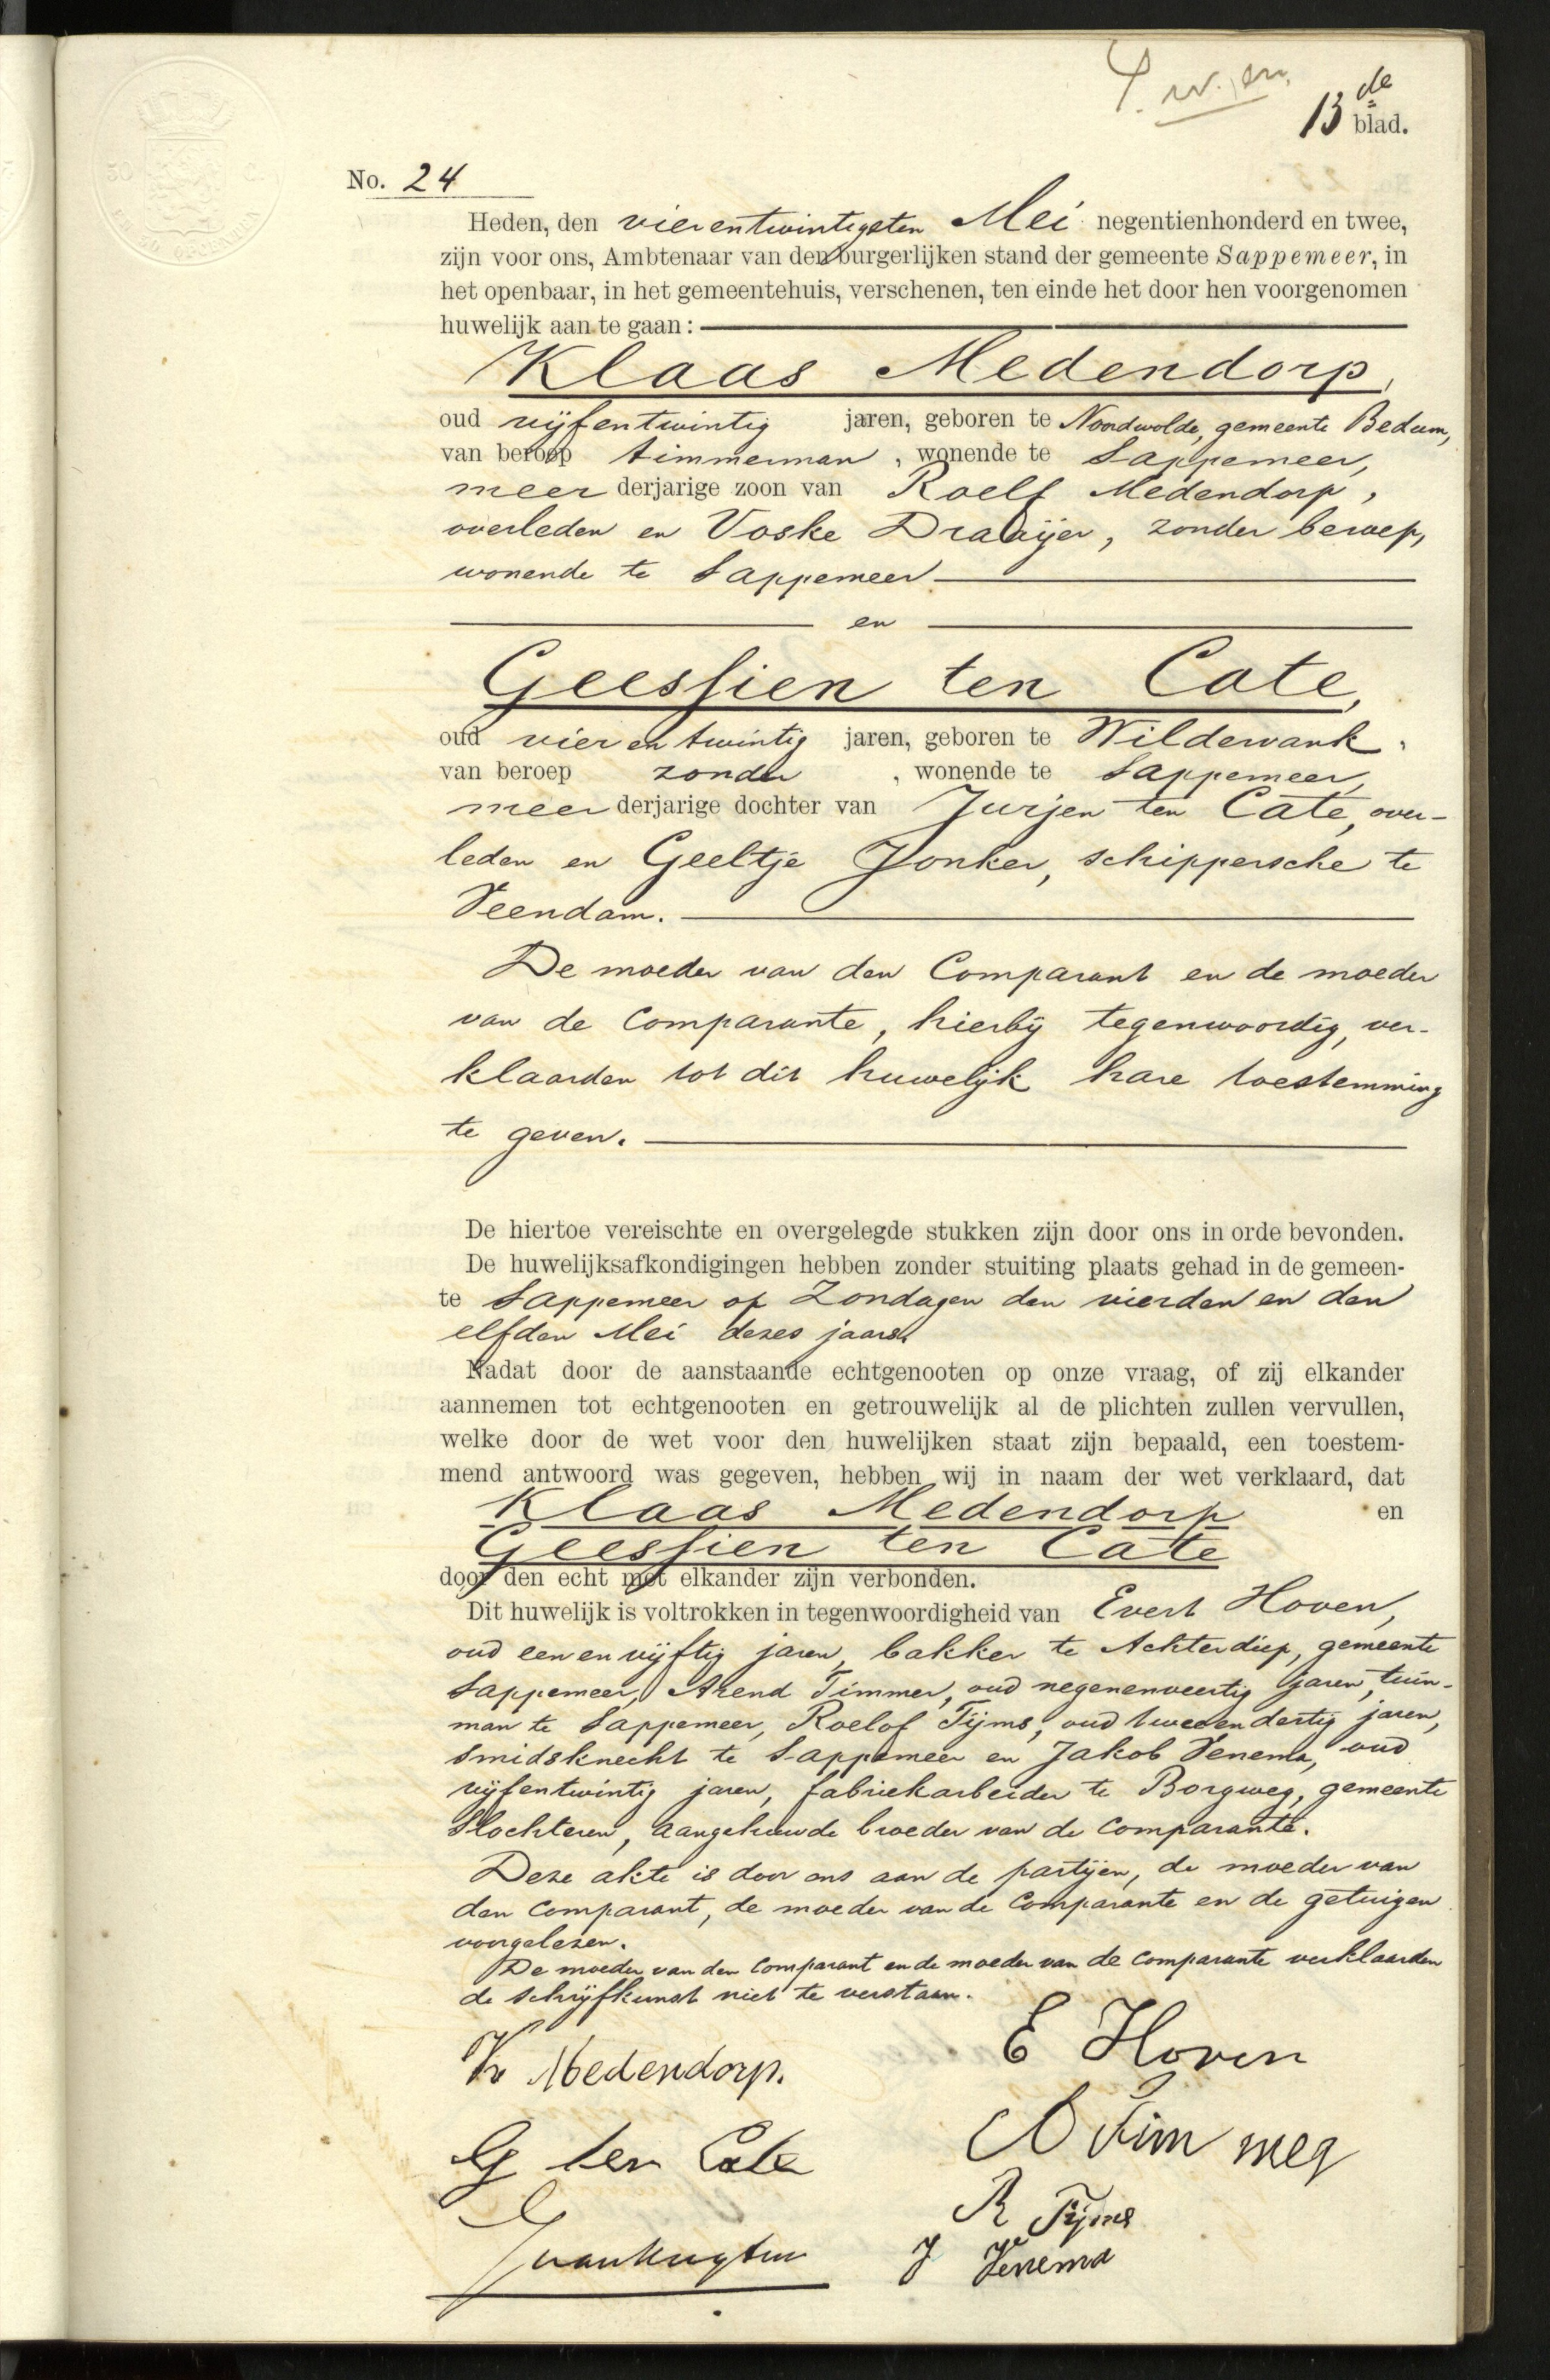 13de
blad.
No. 24
Heden, den vierentwintigsten Mei negentienhonderd en twee,
zijn voor ons, Ambtenaar van den burgerlijken stand der gemeente Sappemeer, in
het openbaar, in het gemeentehuis, verschenen, ten einde het door hen voorgenomen
huwelijk aan te gaan:
Klaas Medendorp,
oud vijfentwintig jaren, geboren te Noordwolde, gemeente Bedum,
van beroep timmerman, wonende te Sappemeer,
meerderjarige zoon van Roelf Medendorp,
overleden en Voske Draaijer, zonder beroep,
wonende te Sappemeer
en
Geessien ten Cate,
oud vier en twintig jaren, geboren te Wildervank,
van beroep zonder, wonende te Sappemeer,
meerderjarige dochter van Jurjen ten Cate, over-
leden en Geeltje Jonker, schippersche te
Veendam.
De moeder van den Comparant en de moeder
van de Comparante, hierbij tegenwoordig, ver-
klaarden tot dit huwelijk hare toestemming
te geven.
De hiertoe vereischte en overgelegde stukken zijn door ons in orde bevonden.
De huwelijksafkondigingen hebben zonder stuiting plaats gehad in de gemeen-
te Sappemeer op Zondagen den vierden en den
elfden Mei dezes jaars.
Nadat door de aanstaande echtgenooten op onze vraag, of zij elkander
aannemen tot echtgenooten en getrouwelijk al de plichten zullen vervullen,
welke door de wet voor den huwelijken staat zijn bepaald, een toestem-
mend antwoord was gegeven, hebben wij in naam der wet verklaard, dat
Klaas Medendorp en
Geessien ten Cate
door den echt met elkander zijn verbonden.
Dit huwelijk is voltrokken in tegenwoordigheid van Evert Hoven,
oud een en vijftig jaren, bakker te Achterdiep, gemeente
Sappemeer, Arend Timmer, oud negenenveertig jaren, tuin-
man te Sappemeer, Roelof Tijms, oud tweeendertig jaren,
smidsknecht te Sappemeer en Jakob Venema, oud
vijfentwintig jaren, fabriekarbeider te Borgweg, gemeente
Slochteren, aangehuwde broeder van de Comparante.
Deze akte is door ons aan de partijen, de moeder van
den Comparant, de moeder van de Comparante en de getuigen
voorgelezen.
De moeder van den Comparant en de moeder van de Comparante verklaarden
de schrijfkunst niet te verstaan.
K Medendorp.
E Hoven
G ten Cate
A Timmer
R Tijms
J Venema